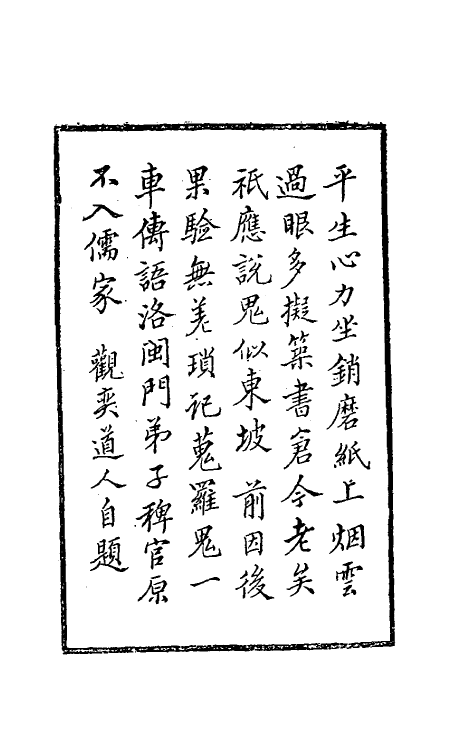 平生心力坐銷磨紙上烟雲
過眼多擬築書倉今老矣
祇應說鬼似東坡 前因後
果驗無差瑣記蒐羅鬼一
車傳語洛閩門弟子稗官原
不入儒家 觀奕道人自題